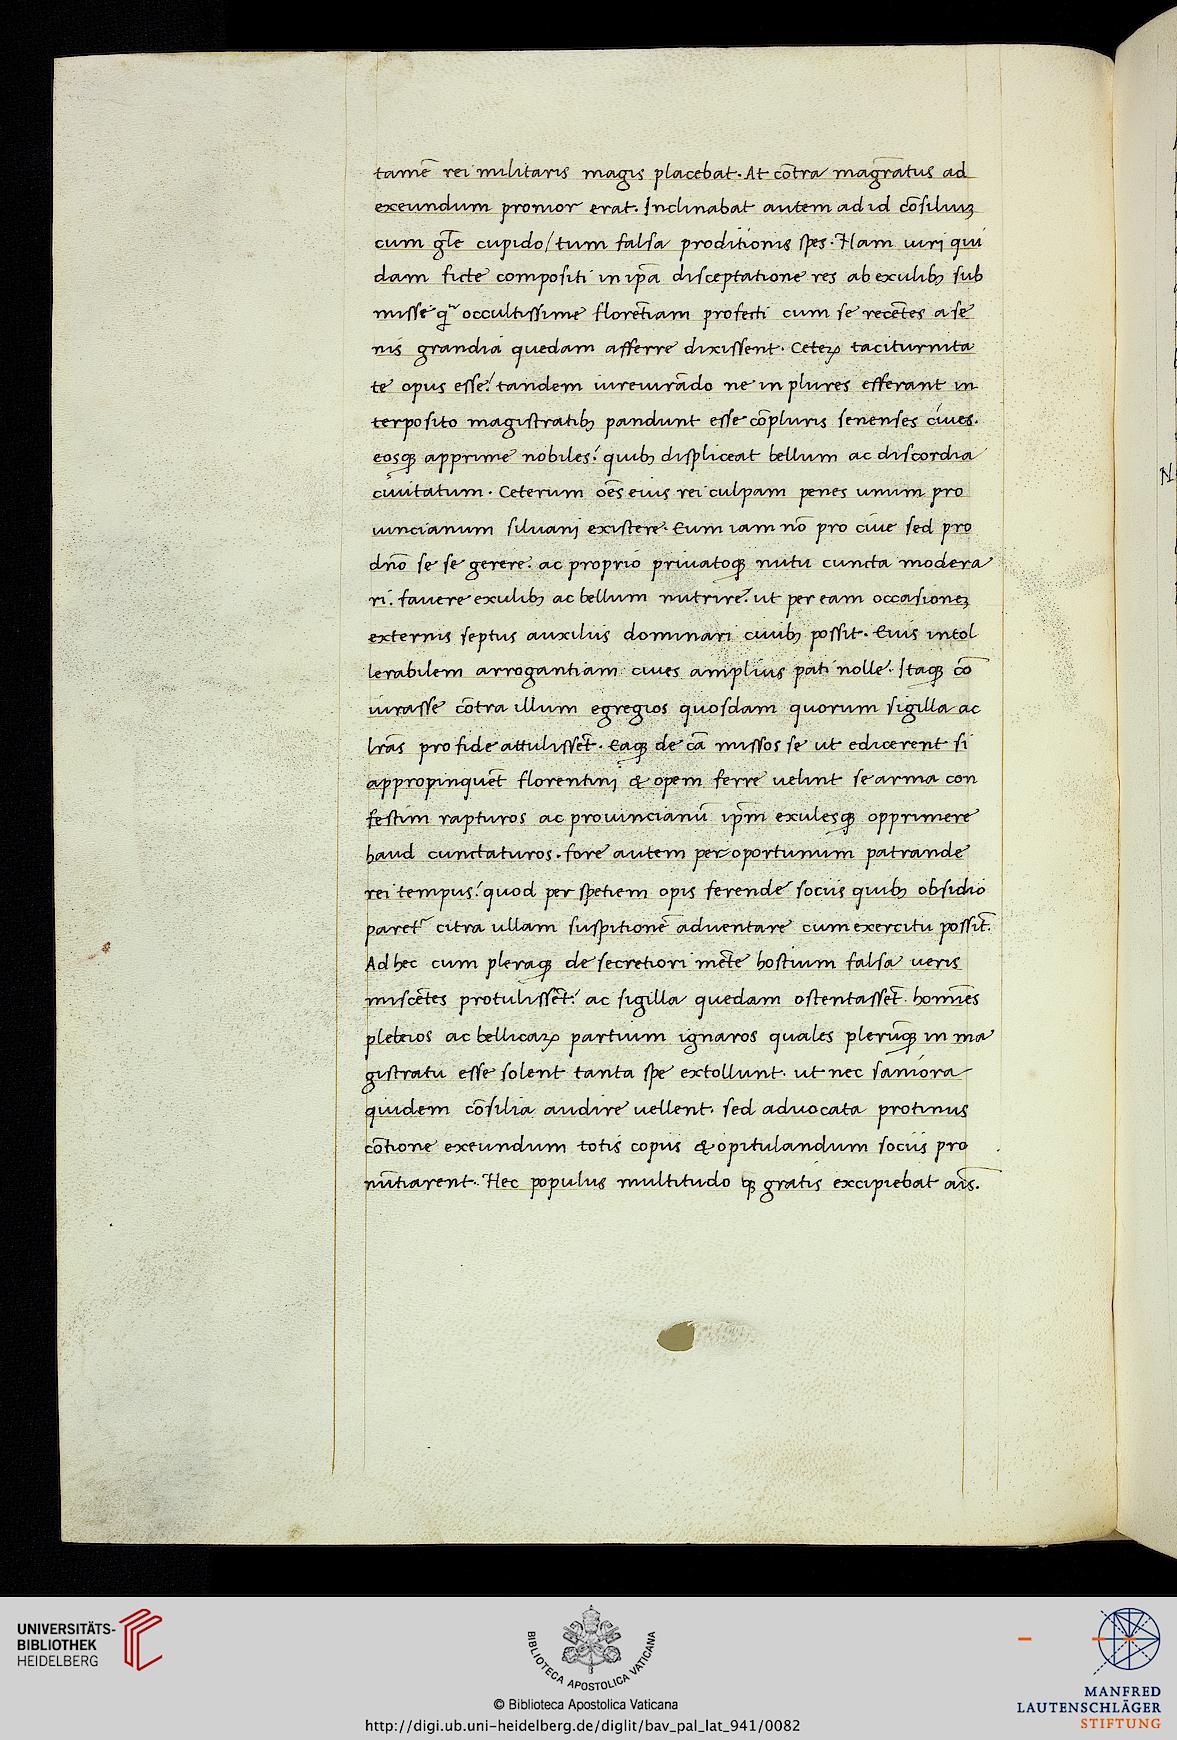 tamē rei militaris magis placebat. At cōtra magr̄atus ad
exeundum pronior erat. Inclinabat autem ad id cōsiliuꝫ
cum gl̄e cupido/ tum falsa proditionis spes. Nam uiri qui
dam ficte compositi in ip̄a disceptatione res ab exulibꝫ sub
missę qr̄ occultissime florētiam profecti cum se recētes a se
nis grandia quedam afferre dixissent. Ceteꝝ taciturnita
te opus esse: tandem iureiurādo ne in plures efferant in
terposito magistratibꝫ pandunt esse cōpluris senenses ciues.
eosqꝫ apprime nobiles: quibꝫ displiceat bellum ac discordia
ciuitatum. Ceterum oēs eius rei culpam penes unum pro
uincianum siluani existere. Eum iam nō pro ciue sed pro
dn̄o se se gerere. ac proprio priuatoqꝫ nutu cuncta modera
ri. fauere exulibꝫ ac bellum nutrire: ut per eam occasioneꝫ
externis septus auxiliis dominari ciuibꝫ possit. Euis intol
lerabilem arrogantiam ciues amplius pati nolle. Itaqꝫ cō
iurasse cōtra illum egregios quosdam quorum sigilla ac
lr̄as pro fide attulissēt. Eaqꝫ de cā missos se ut edicerent si
appropinquēt florentini & opem ferre uelint se arma con
festim rapturos ac prouincianū ip̄m exulesqꝫ opprimere
haud cunctaturos. fore autem per oportunum patrande
rei tempus: quod per spetiem opis ferende sociis quibꝫ obsidio
paret̄ citra ullam suspitionē aduentare cum exercitu possīt.
Ad hec cum pleraqꝫ de secretiori mēte hostium falsa ueris
miscētes protulissēt: ac sigilla quedam ostentassēt. homīes
plebeios ac bellicaꝝ partium ignaros quales plerūqꝫ in ma
gistratu esse solent tanta spe extollunt. ut nec saniora
quidem cōsilia audire uellent. sed aduocata protinus
cōtione exeundum totis copiis & opitulandum sociis pro
nūtiarent. Hec populus multitudo qꝫ gratis excipiebat aīs.
UNIVERSITÄTS-
BIBLIOTHEK
HEIDELBERG
BIBLIOTECA APOSTOLICA VATICANA
© Biblioteca Apostolica Vaticana
http://digi.ub.uni-heidelberg.de/diglit/bav_pal_lat_941/0082
MANFRED
LAUTENSCHLÄGER
STIFTUNG